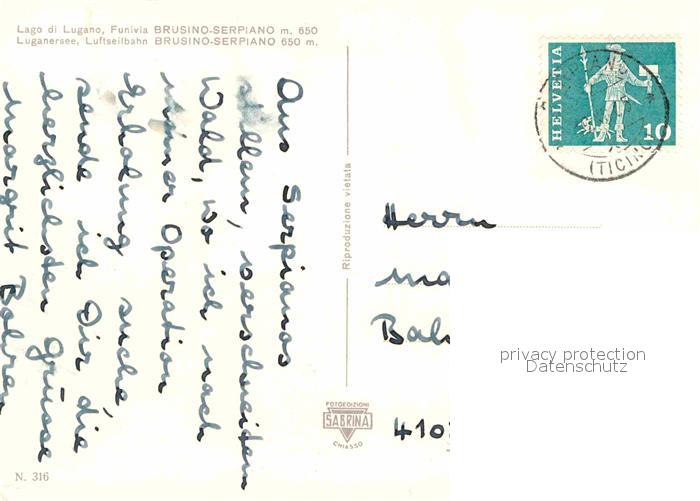 Lago di Lugano, Funivia BRUSINO-SERPIANO m. 650
Luganersee, Luftseilbahn BRUSINO-SERPIANO 650 m.
Aus Serpianos
stillem, verschneitem
Wald, wo ich nach
meiner Operation
Erholung suche,
sende ich Dir die
herzlichsten Grüsse
Margrit
Riproduzione vietata
HELVETIA
10
(TICINO)
Herrn
privacy protection
Datenschutz
FOTOEDIZIONI
SABRINA
CHIASSO
410
N. 316